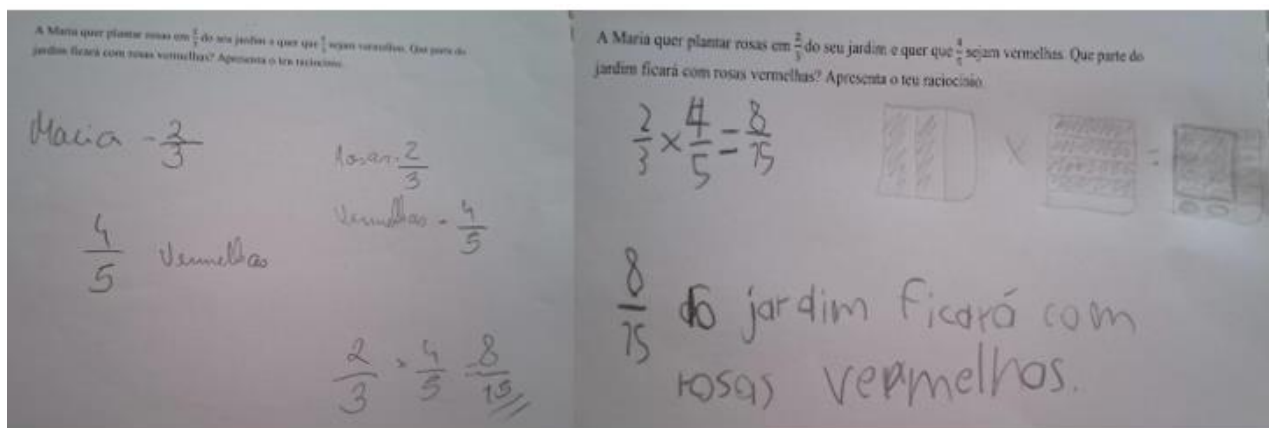 A Maria quer plantar rosas em 2/3 do seu jardim e quer que 4/5 sejam vermelhas. Que parte do
jardim ficará com rosas vermelhas? Apresenta o teu raciocínio.
Maria - 2/3
4/5 Vermelhas
Rosas - 2/3
Vermelhas - 4/5
2/3 × 4/5 = 8/15
A Maria quer plantar rosas em 2/3 do seu jardim e quer que 4/5 sejam vermelhas. Que parte do
jardim ficará com rosas vermelhas? Apresenta o teu raciocínio.
2/3 × 4/5 = 8/15
× =
8/15 do jardim ficará com
rosas vermelhas.